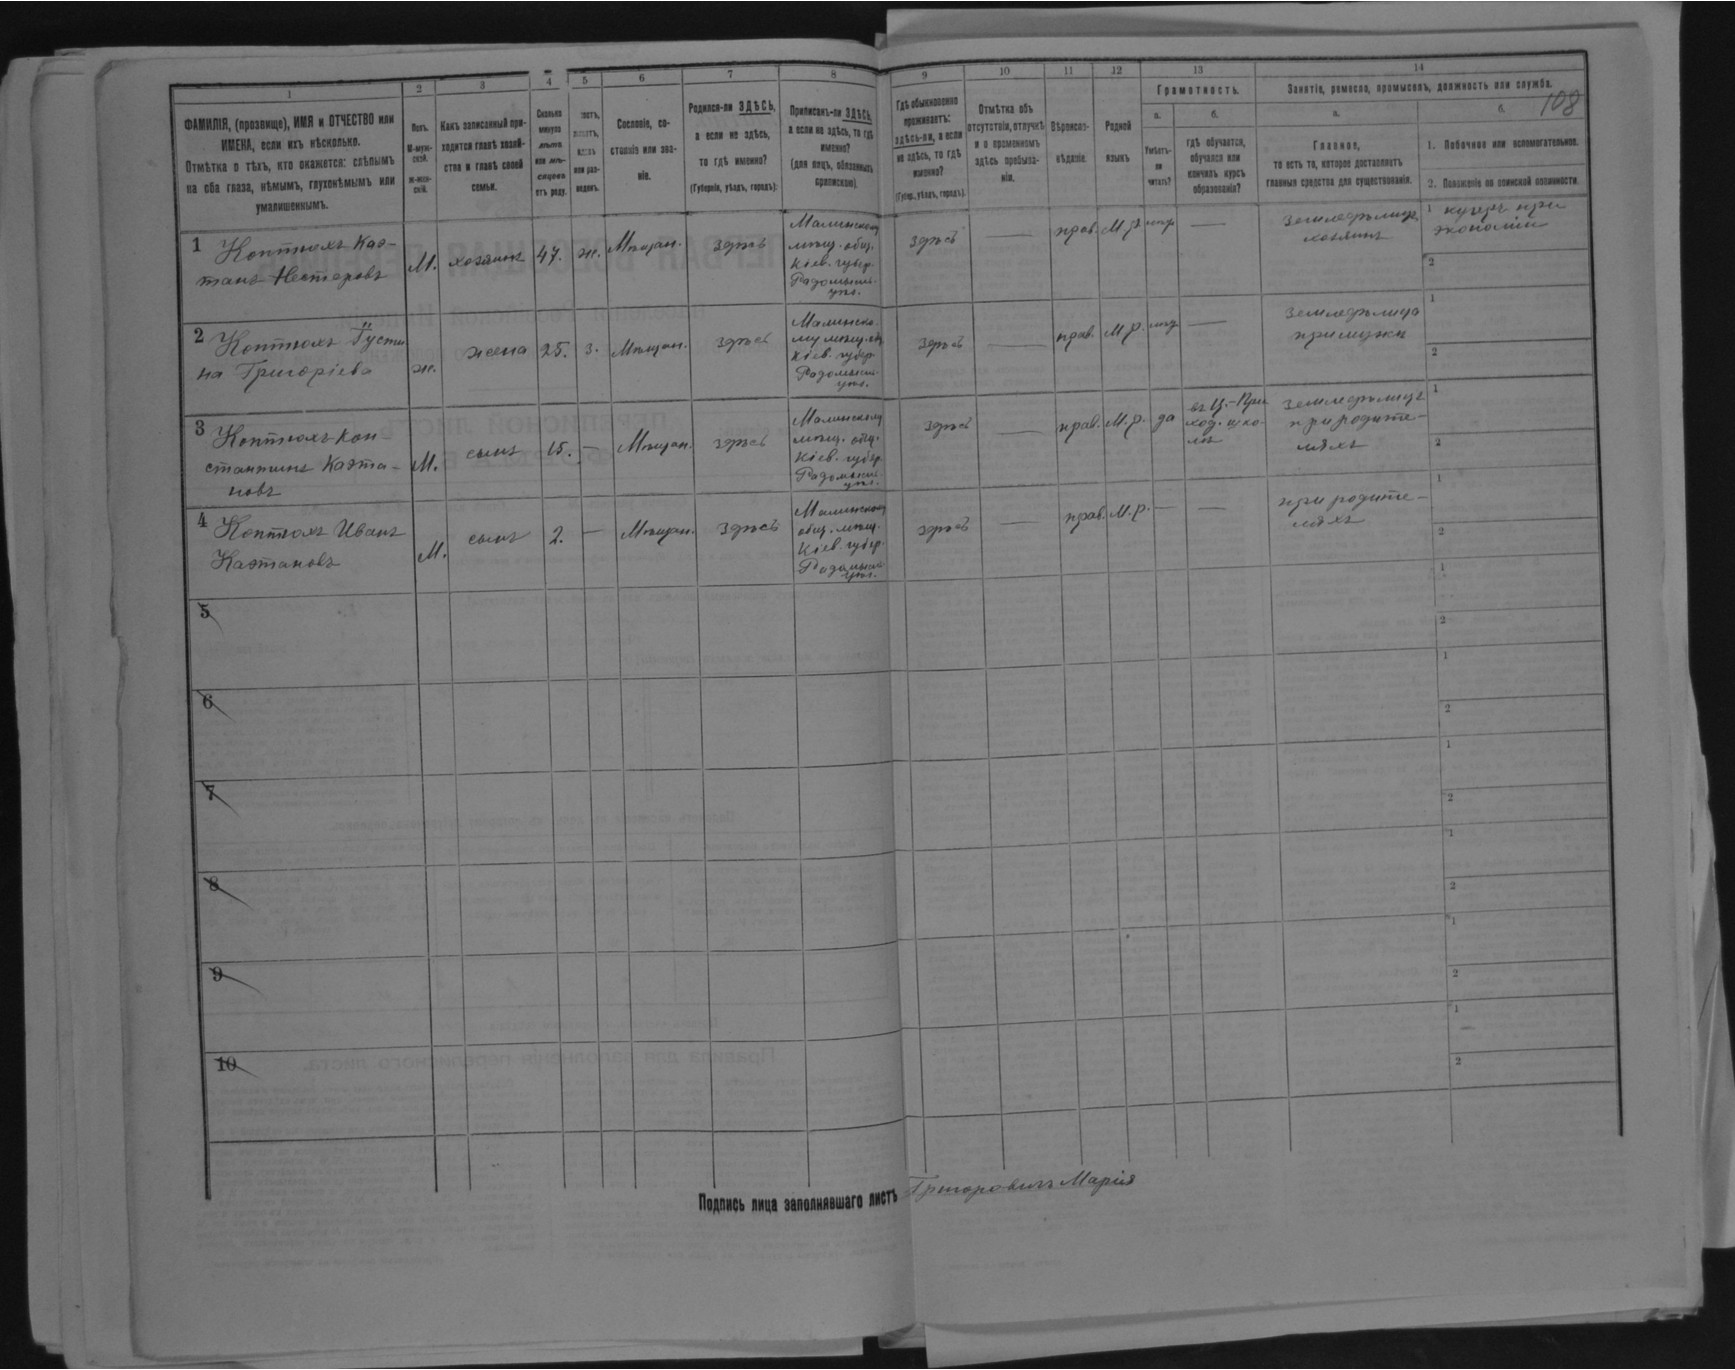 108
1 2 3 4 5 6 7 8 9 10 11 12 13 14
ФАМИЛІЯ, (прозвище), ИМЯ и ОТЧЕСТВО или
ИМЕНА, если ихъ нѣсколько.
Отмѣтка о тѣхъ, кто окажется: слѣпымъ
на оба глаза, нѣмымъ, глухонѣмымъ или
умалишеннымъ.
Полъ.
М-муж-
ской.
Ж-жен-
скій.
Какъ записанный при-
ходится главѣ хозяй-
ства и главѣ своей
семьи.
Сколько
минуло
лѣтъ
или мѣ-
сяцевъ
отъ роду.
Сословіе, со-
стояніе или зва-
ніе.
Родился-ли ЗДѢСЬ,
а если не здѣсь,
то гдѣ именно?
(Губернія, уѣздъ, городъ).
Приписанъ-ли ЗДѢСЬ,
а если не здѣсь, то гдѣ
именно?
(для лицъ, обязанныхъ
припискою).
Гдѣ обыкновенно
проживаетъ:
здѣсь-ли, а если
не здѣсь, то гдѣ
именно?
(Губер., уѣздъ, городъ).
Отмѣтка объ
отсутствіи, отлучкѣ
и о временномъ
здѣсь пребыва-
ніи.
Вѣроиспо-
вѣданіе.
Родной
языкъ
Грамотность.
а.
Умѣетъ-
ли
читать?
б.
гдѣ обучается,
обучался или
кончилъ курсъ
образованія?
Занятіе, ремесло, промыселъ, должность или служба.
а.
Главное,
то есть то, которое доставляетъ
главныя средства для существованія.
б.
1. Побочное или вспомогательное.
2. Положеніе по воинской повинности.
1 Коптюхъ Каэ-
танъ Нестеровъ
М. хозяинъ 47. ж. Мѣщан. здѣсь
Малинскому
мѣщ. общ.
Кіев. губер.
Радомысл.
уѣз.
здѣсь — прав. М.р. —
Земледѣлецъ
хозяинъ
1 кучеръ при
экономіи
2
2 Коптюхъ Густи
на Григоріева
ж. жена 25. з. Мѣщан. здѣсь
Малинско-
му мѣщ. об.
Кіев. губер.
Радомысл.
уѣз.
здѣсь — прав. М.р. —
Земледѣлица
при мужи
1
2
3 Коптюхъ Кон
стантинъ Каэта-
новъ
М. сынъ 15. — Мѣщан. здѣсь
Малинскому
мѣщ. общ.
Кіев. губер.
Радомысл.
уѣз.
здѣсь — прав. М.р. да
въ Ц.-При
ход. шко-
лѣ
Земледѣлецъ
при родите-
ляхъ
1
2
4 Коптюхъ Иванъ
Каэтановъ
М. сынъ 2. — Мѣщан. здѣсь
Малинскому
общ. мѣщ.
Кіев. губер.
Радомысл.
уѣз.
здѣсь — прав. М.р. — —
при родите-
ляхъ
1
2
5
1
2
6
1
2
7
1
2
8
1
2
9
1
2
10
1
2
Подпись лица заполнявшаго листъ Григоровичъ Марія